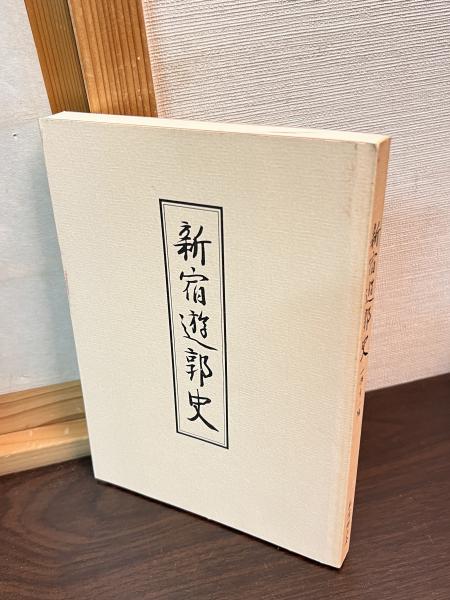 新宿遊郭史
新宿遊郭史